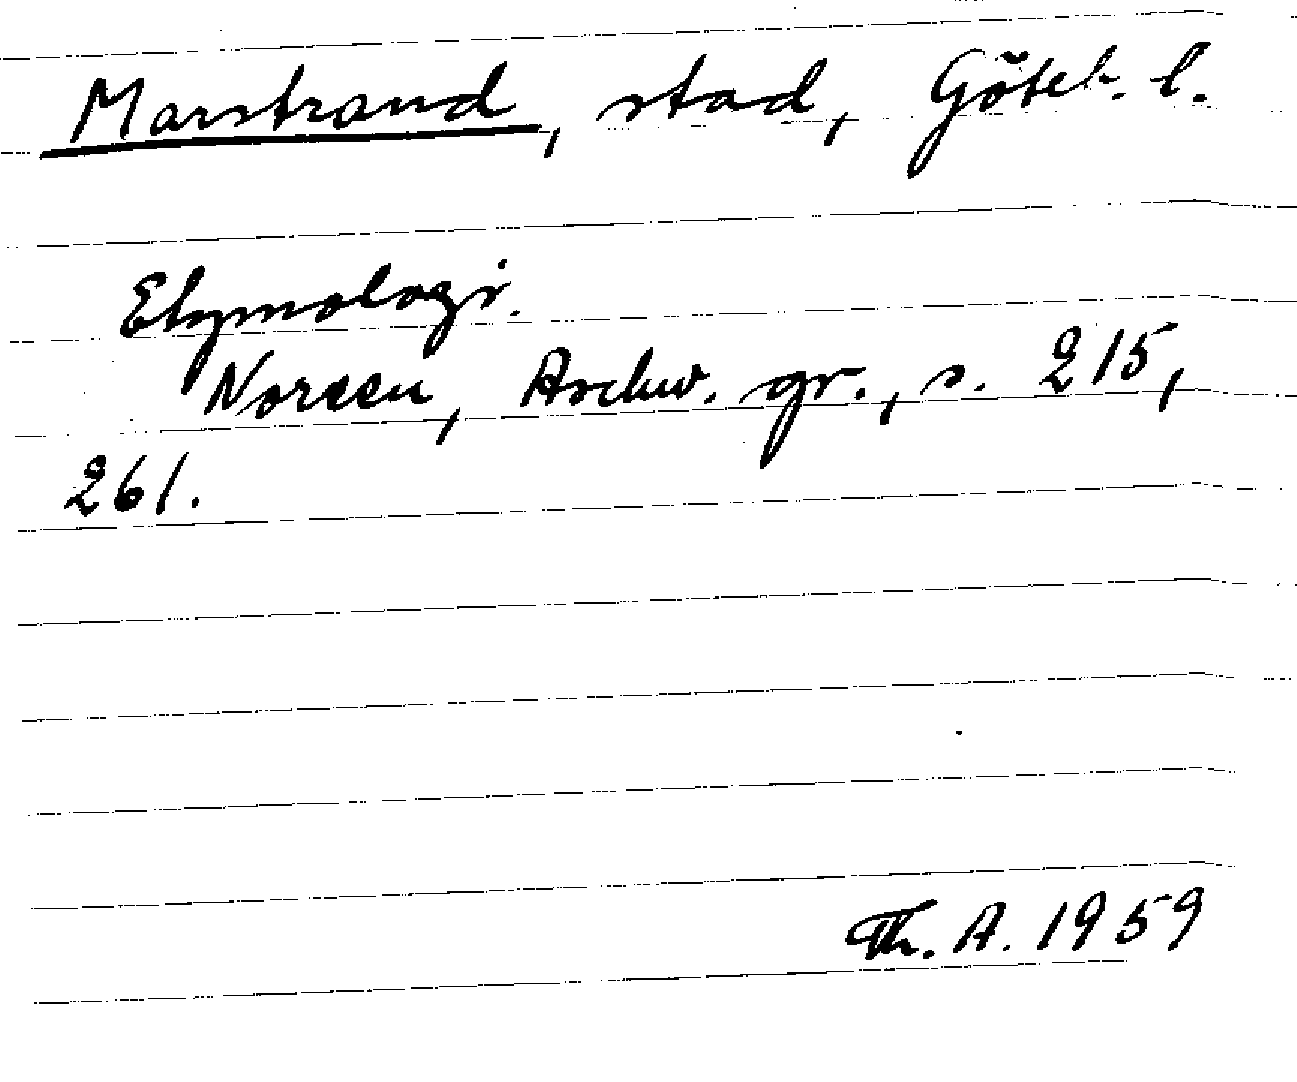 Marstrand, stad, Göteb. l.
Etymologi.
Noreen, Aschw. gr., s. 215,
261.
Th. A. 1959